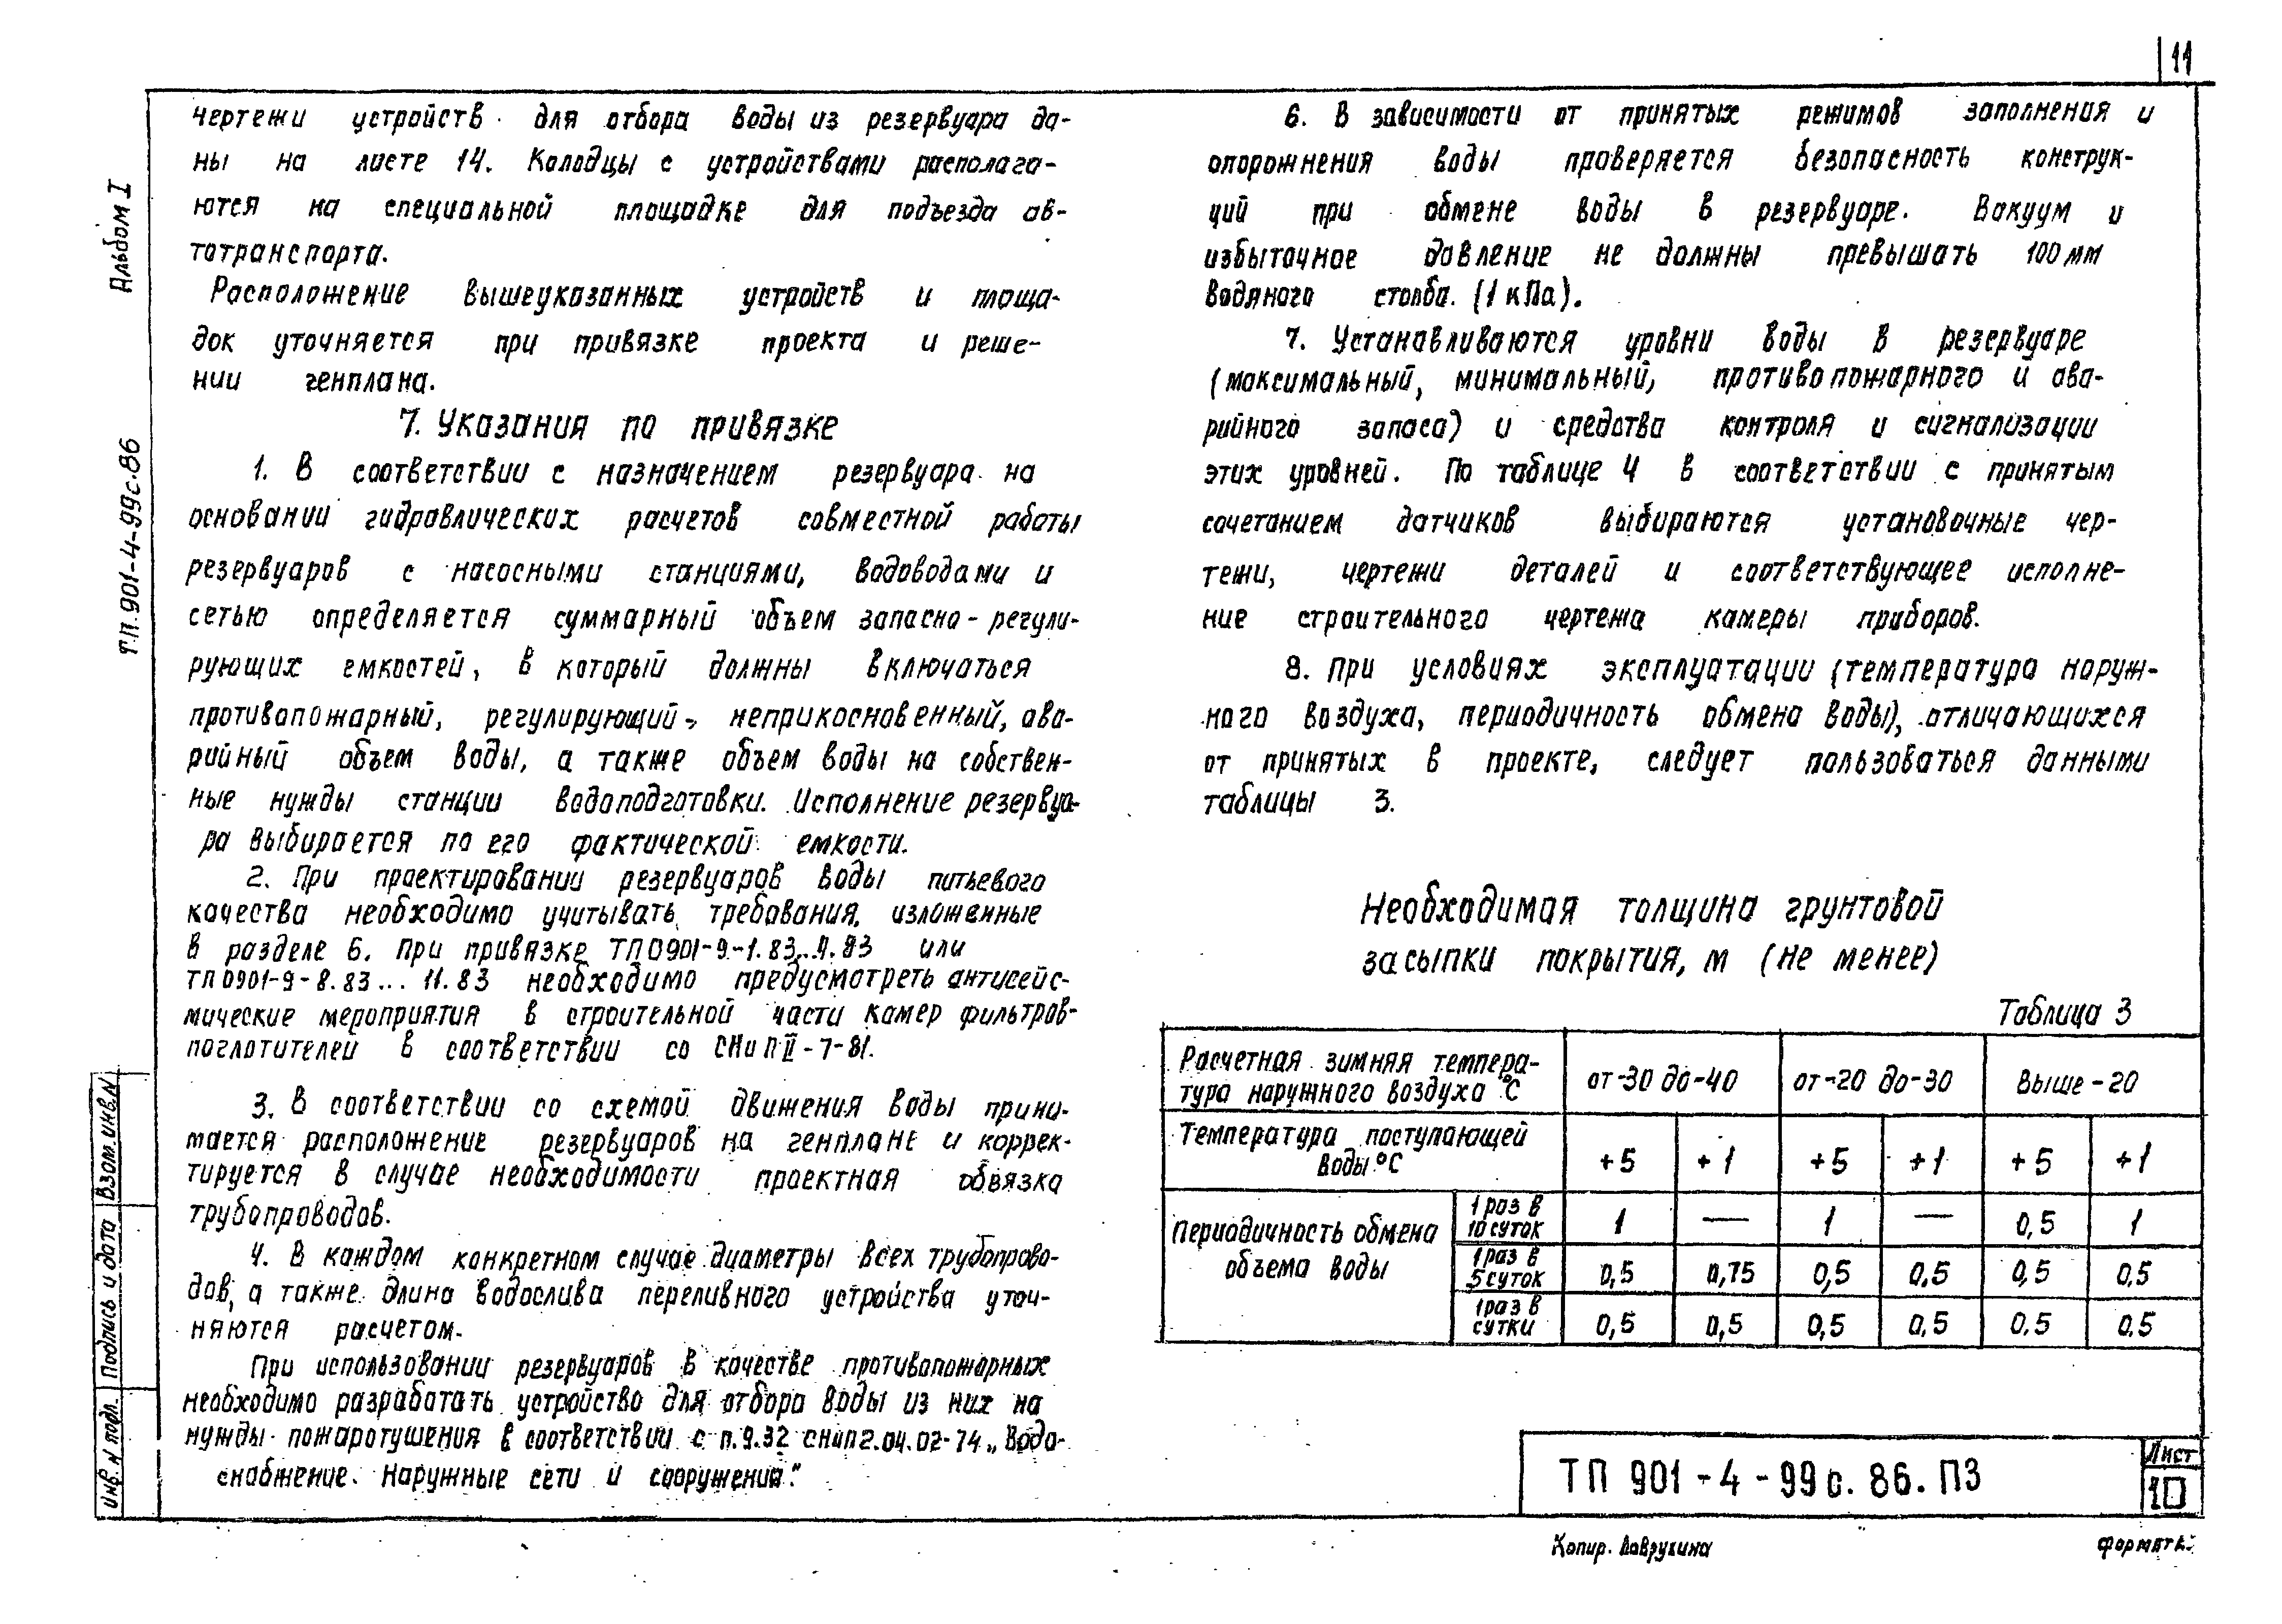 11
Альбом I
Т.П. 901-4-99с.86
чертежи устройств для отбора воды из резервуара да-
ны на листе 14. Колодцы с устройствами располага-
ются на специальной площадке для подъезда ав-
тотранспорта.
Расположение вышеуказанных устройств и площа-
док уточняется при привязке проекта и реше-
нии генплана.
7. Указания по привязке
1. В соответствии с назначением резервуара на
основании гидравлических расчетов совместной работы
резервуаров с насосными станциями, водоводами и
сетью определяется суммарный объем запасно-регули-
рующих емкостей, в который должны включаться
противопожарный, регулирующий, неприкосновенный, ава-
рийный объем воды, а также объем воды на собствен-
ные нужды станции водоподготовки. Исполнение резервуа-
ра выбирается по его фактической емкости.
2. При проектировании резервуаров воды питьевого
качества необходимо учитывать требования, изложенные
в разделе 6. При привязке ТП 0901-9-1.83...4.83 или
ТП 0901-9-8.83... 11.83 необходимо предусмотреть антисейс-
мические мероприятия в строительной части камер фильтров-
поглотителей в соответствии со СНиП II-7-81.
3. В соответствии со схемой движения воды прини-
мается расположение резервуаров на генплане и коррек-
тируется в случае необходимости проектная обвязка
трубопроводов.
4. В каждом конкретном случае диаметры всех трубопрово-
дов, а также длина водослива переливного устройства уточ-
няются расчетом.
При использовании резервуаров в качестве противопожарных
необходимо разработать устройство для отбора воды из них на
нужды пожаротушения в соответствии с п.9.32 СНиП 2.04.02-74 „Водо-
снабжение. Наружные сети и сооружения."
6. В зависимости от принятых режимов заполнения и
опорожнения воды проверяется безопасность конструк-
ций при обмене воды в резервуаре. Вакуум и
избыточное давление не должны превышать 100 мм
водяного столба. (1 кПа).
7. Устанавливаются уровни воды в резервуаре
(максимальный, минимальный, противопожарного и ава-
рийного запаса) и средства контроля и сигнализации
этих уровней. По таблице 4 в соответствии с принятым
сочетанием датчиков выбираются установочные чер-
тежи, чертежи деталей и соответствующее исполне-
ние строительного чертежа камеры приборов.
8. При условиях эксплуатации (температура наруж-
ного воздуха, периодичность обмена воды), отличающихся
от принятых в проекте, следует пользоваться данными
таблицы 3.
Необходимая толщина грунтовой
засыпки покрытия, м (не менее)
Таблица 3
Расчетная зимняя темпера-
тура наружного воздуха °С
от -30 до -40
от -20 до -30
выше -20
Температура поступающей
воды °С
+5 +1 +5 +1 +5 +1
Периодичность обмена
объема воды
1 раз в
10 суток
1 — 1 — 0,5 1
1 раз в
5 суток
0,5 0,75 0,5 0,5 0,5 0,5
1 раз в
сутки
0,5 0,5 0,5 0,5 0,5 0,5
Инв. N подл.
Подпись и дата
Взам. инв. N
ТП 901-4-99с.86.ПЗ
Лист
10
Копир. Лаврухина
Формат